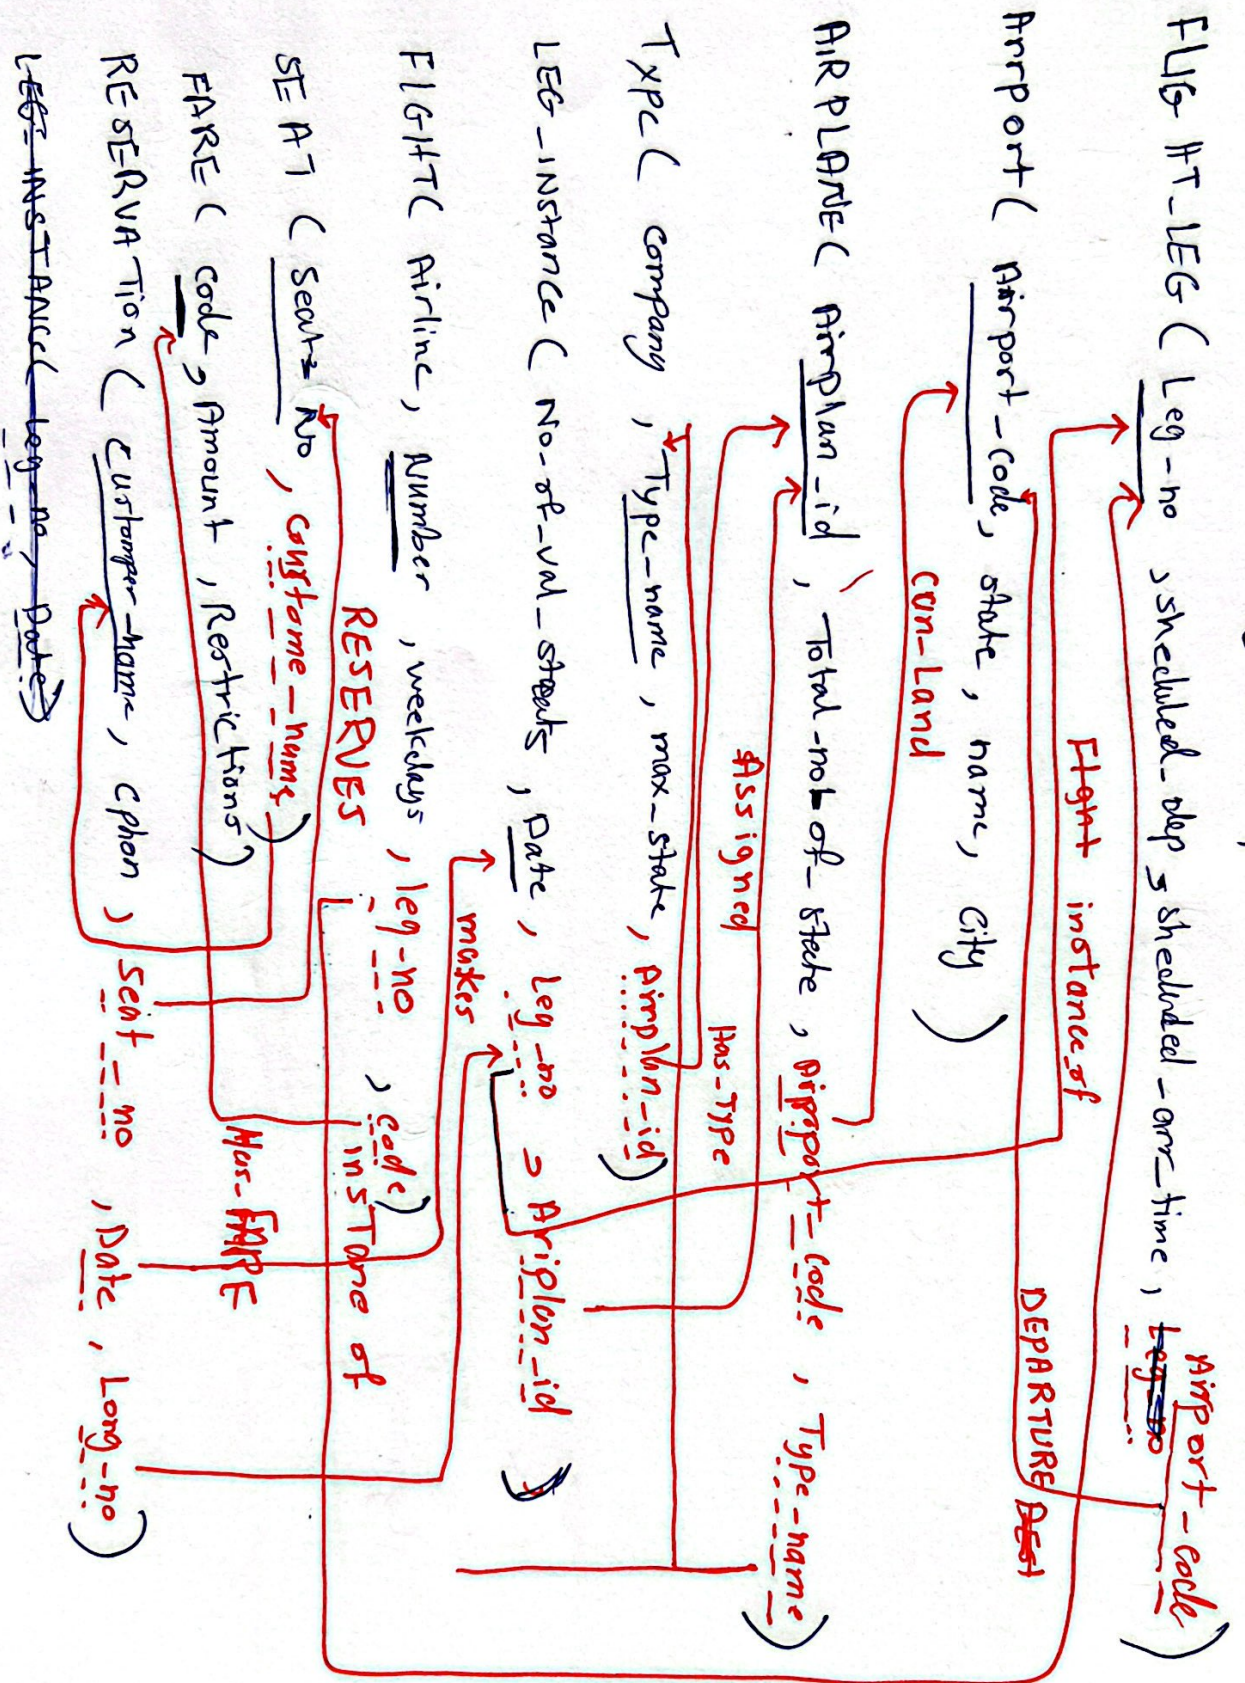 FLIGHT_LEG ( Leg-no , sheduled_dep , sheduled_arr_time , Leg-no Airport-code )
Flght instance_of
DEPARTURE
Arrport ( Airport-code, state, name, city )
Can-Land
AIRPLANE ( Airplan_id , Total-no-of-state , Airpport-code , Type-name )
Assigned
Has-Type
Type ( company , Type-name , max-state , Airplan-id )
LEG_INstance ( No-of-val-steats , Date , Leg-no , Ariplan-id )
makes
FlGHT ( Airline , Number , weekdays , leg-no , code )
RESERVES
insTane of
SEAT ( Seat-No , Coustome-name )
Has-FARE
FARE ( code , Amount , Restrictions )
RESERVATion ( Customper-name , Cphon , Seat-no , Date , Long-no )
LEG-INSTANCE( Leg-no, Date )